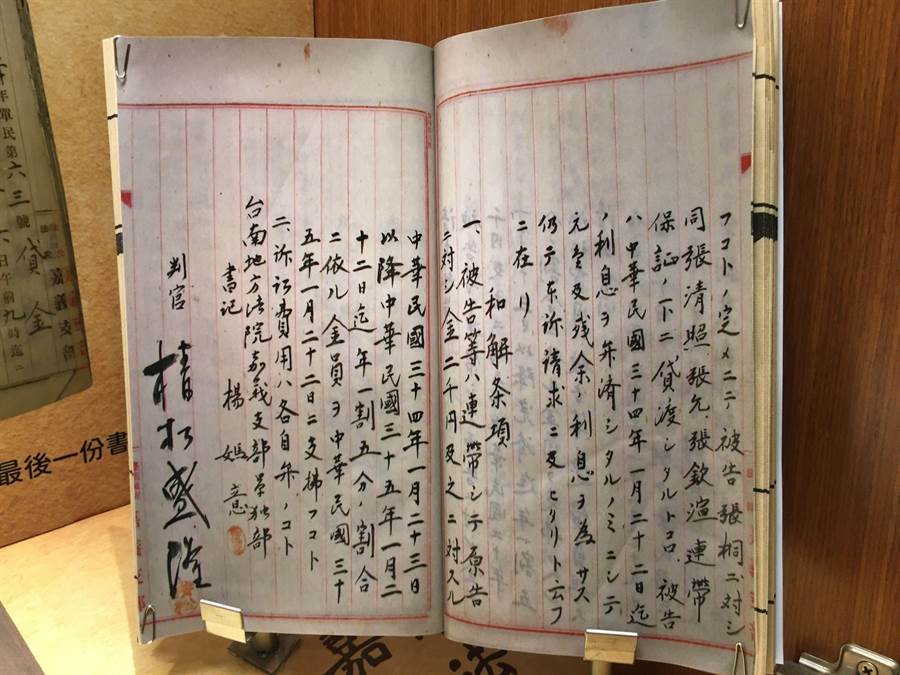 フコトノ定メニテ被告張桐ニ対シ
同張清照、張允、張欽渲連帶
保証ノ下ニ貸渡シタルトコロ被告
ハ中華民國三十四年一月二十二日迄
ノ利息ヲ弁済シタルノミニシテ
元金及残余ノ利息ヲ為サス
仍テ本訴請求ニ及ヒタリト云フ
ニ在リ
和解条項
一、被告等ハ連帶シテ原告
ニ対シ金二千円及之ニ対スル
中華民國三十四年一月二十三日
以降中華民國三十五年一月二
十二日迄年一割五分ノ割合
ニ依ル金員ヲ中華民國三十
五年一月二十二日ニ支拂フコト
二、訴訟費用ハ各自弁ノコト
台南地方法院嘉義支部單独部
書記 楊
判官
年單民第六三號 貸金
嘉義支部
日午前九時
最後一份書
嘉 法